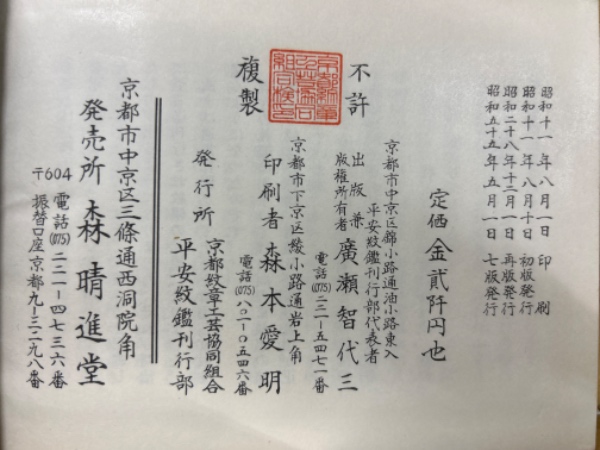 昭和十一年八月一日 印刷
昭和十一年八月十日 初版発行
昭和二十八年十二月一日 再版発行
昭和五十五年五月一日 七版発行
定価 金貳阡円也
不許
複製
京都市中京区錦小路通油小路東入
平安紋鑑刊行部代表者
出版兼
版権所有者 廣瀬智代三
電話(075)二二一-五四七一番
京都市下京区綾小路通岩上角
印刷者 森本愛明
電話(075)八〇一-〇五四六番
発行所
京都紋章工芸協同組合
平安紋鑑刊行部
京都市中京区三條通西洞院角
発売所 森晴進堂
〒604 電話(075)二二一-四七三六番
振替口座京都九-三二九八番